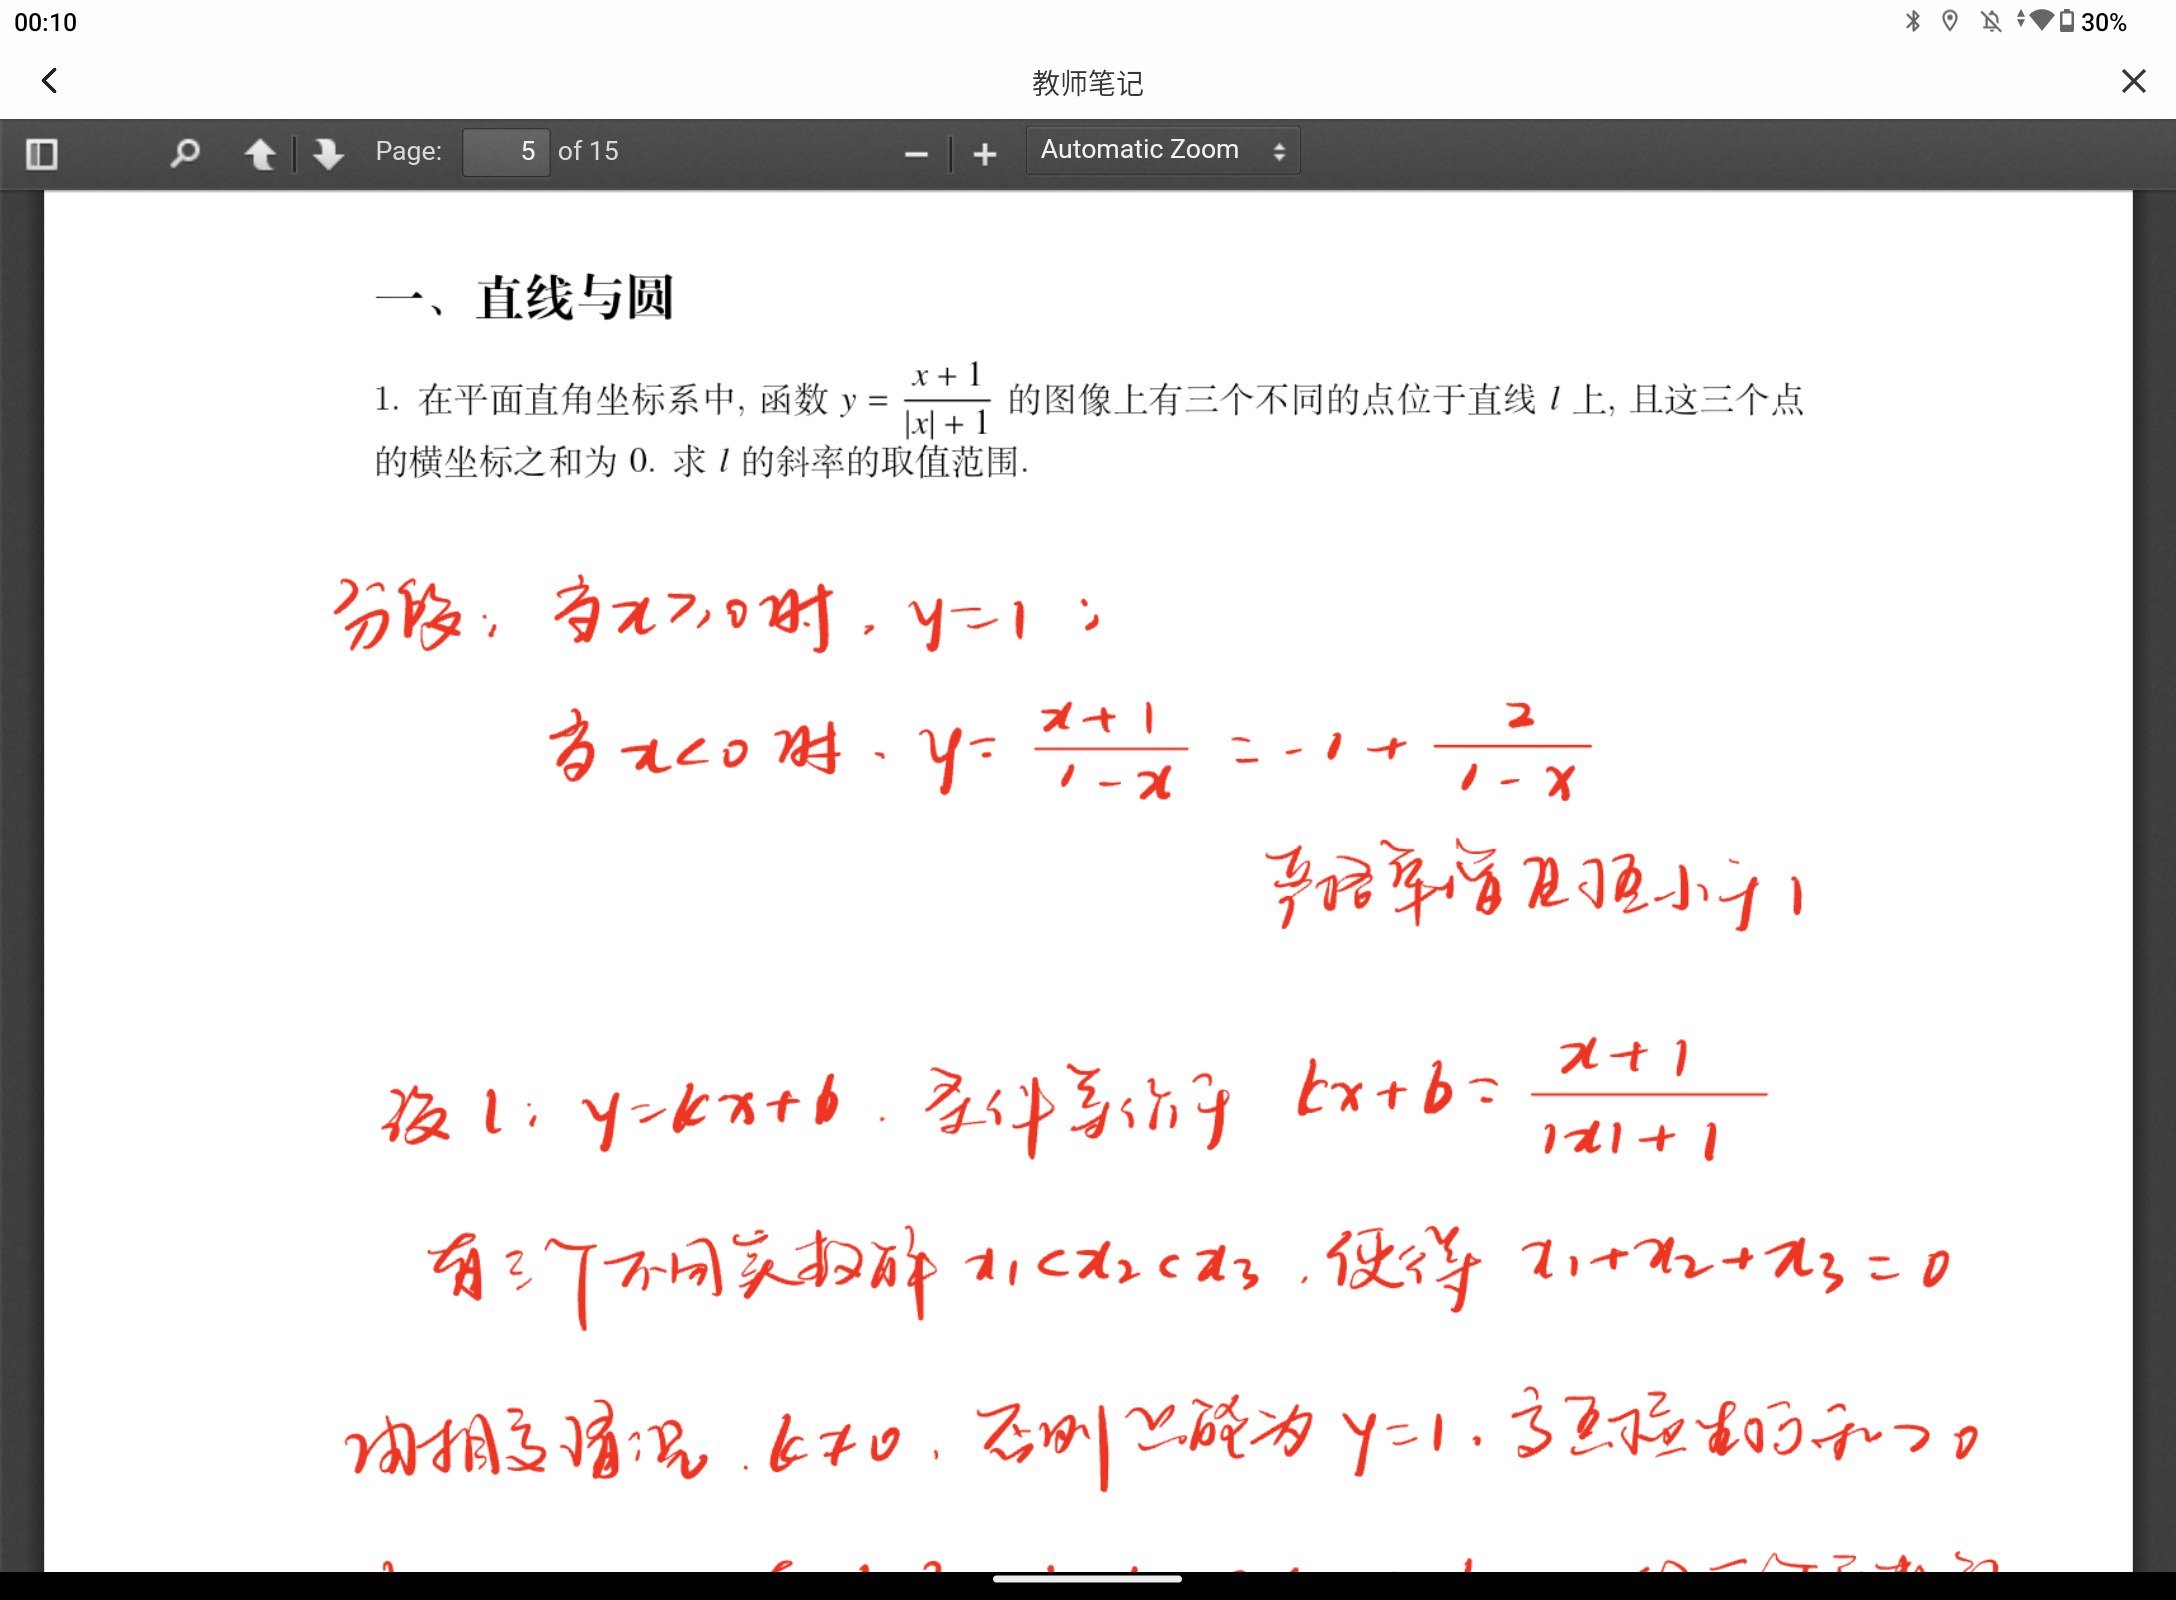 00:10
30%
教师笔记
Page: 5 of 15
Automatic Zoom
一、直线与圆
1. 在平面直角坐标系中, 函数 y = (x + 1)/(|x| + 1) 的图像上有三个不同的点位于直线 l 上, 且这三个点
的横坐标之和为 0. 求 l 的斜率的取值范围.
分段: 当x≥0时, y=1;
当x<0时, y= (x+1)/(1-x) = -1 + 2/(1-x)
严格单增且恒小于1
设 l: y=kx+b. 条件等价于 kx+b= (x+1)/(|x|+1)
有三个不同实数解 x₁<x₂<x₃, 使得 x₁+x₂+x₃=0
由相交情况. k≠0, 否则只能为 y=1, 的和>0